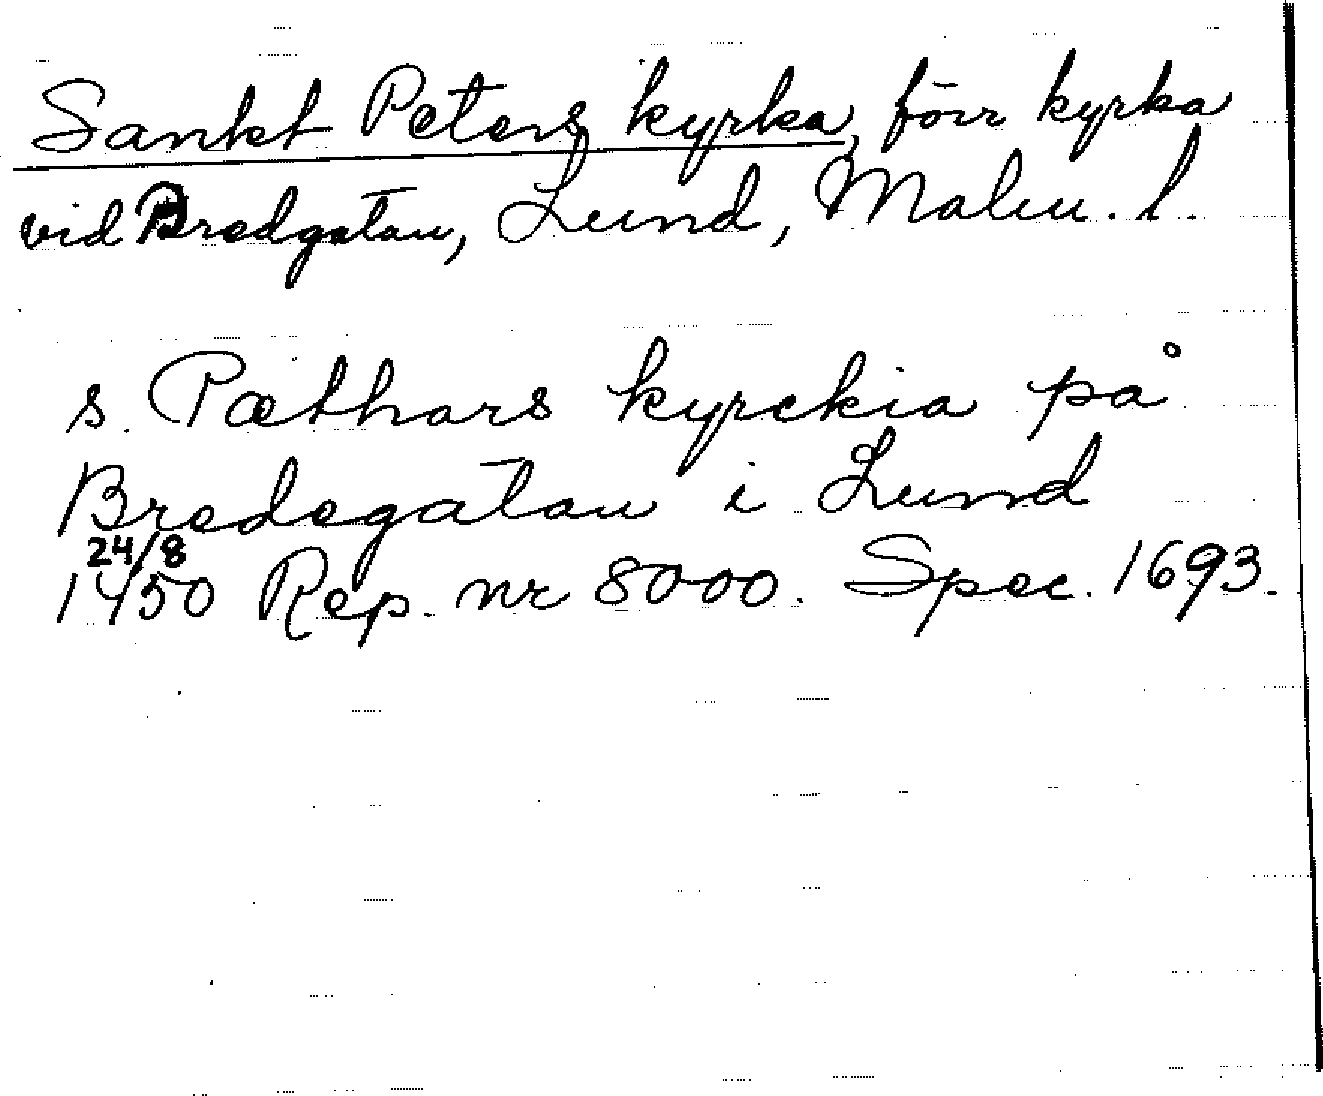 Sankt Peters kyrka, förr kyrka
vid Bredgatan, Lund, Malm. l.
s. Pæthars kyrckia på
Bredegatan i Lund
24/8
1450 Rep. nr 8000. Spec. 1693.